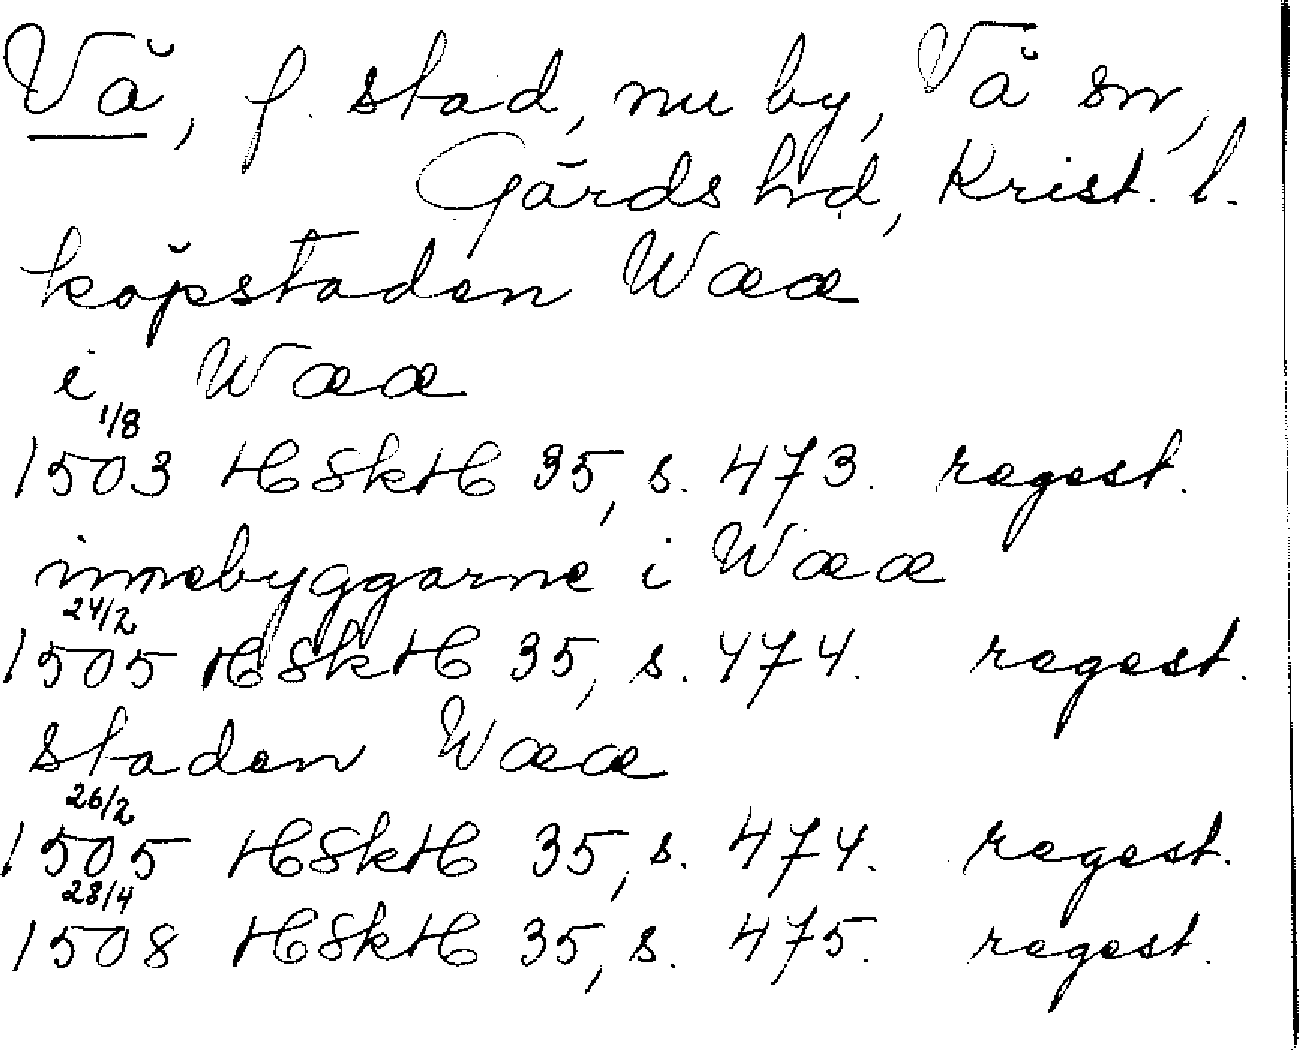 Vä, f. stad, nu by, Vä sn,
Gärds hd, Krist. l.
köpstaden Wææ
i Wææ
1/8
1503 HSkH 35, s. 473. regest.
innebyggarne i Wææ
24/2
1505 HSkH 35, s. 474. regest.
staden Wææ
26/2
1505 HSkH 35, s. 474. regest.
28/4
1508 HSkH 35, s. 475. regest.